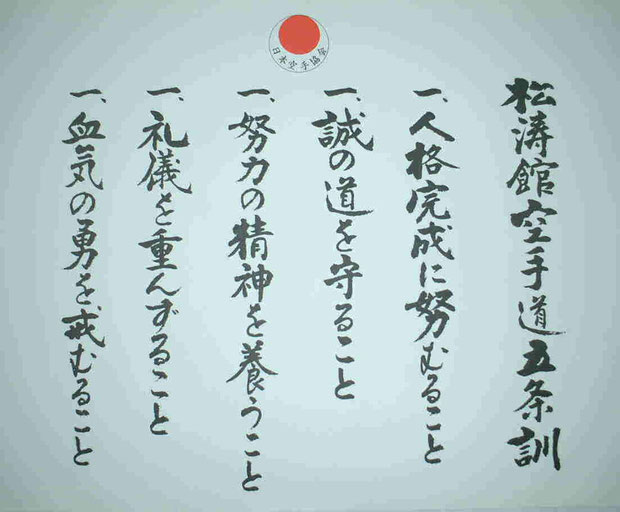 日本空手協会
松涛館空手道五条訓
一、人格完成に努むること
一、誠の道を守ること
一、努力の精神を養うこと
一、礼儀を重んずること
一、血気の勇を戒むること